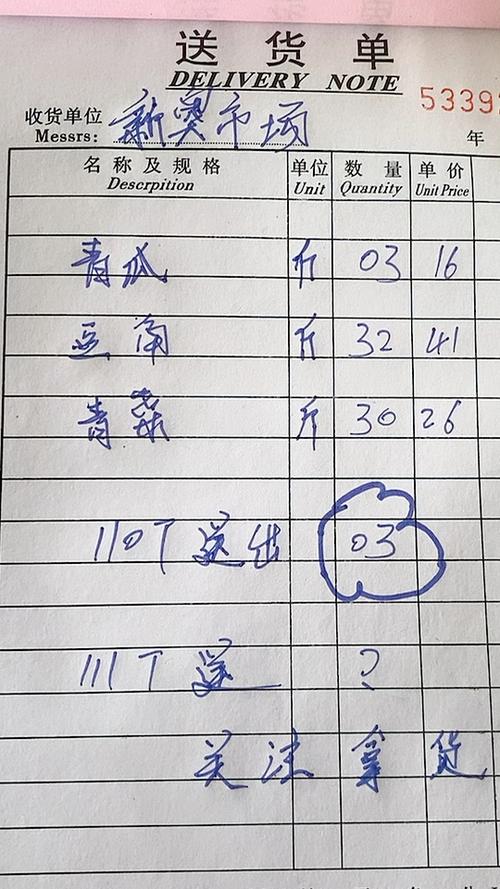 送 货 单
DELIVERY NOTE
5339
收货单位 新奥市场
Messrs:
年
名 称 及 规 格 单位 数 量 单 价
Descrpition Unit Quantity Unit Price
青瓜 斤 03 16
豆角 斤 32 41
青菜 斤 30 26
110T 送出 03
111T 送 ?
关注 拿货